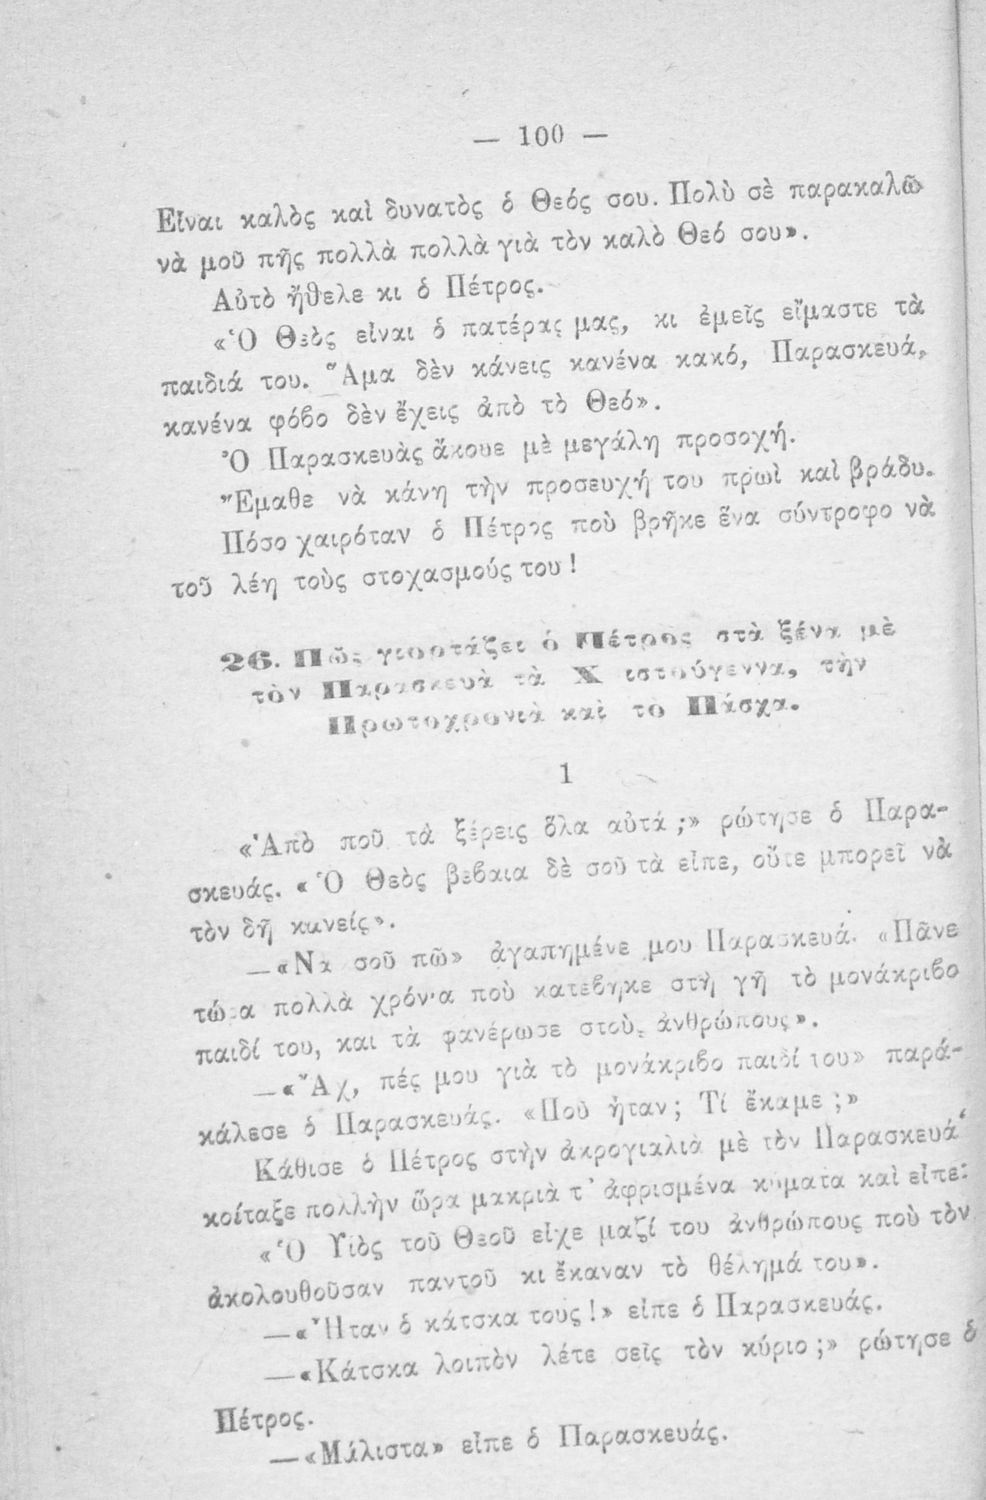 — 100 —
Εἶναι καλὸς καὶ δυνατὸς ὁ Θεός σου. Πολὺ σὲ παρακαλῶ
νὰ μοῦ πῆς πολλὰ πολλὰ γιὰ τὸν καλὸ Θεό σου».
Αὐτὸ ἤθελε κι ὁ Πέτρος.
«Ὁ Θεὸς εἶναι ὁ πατέρας μας, κι ἐμεῖς εἴμαστε τὰ
παιδιά του. Ἅμα δὲν κάνεις κανένα κακό, Παρασκευά,
κανένα φόβο δὲν ἔχεις ἀπὸ τὸ Θεό».
Ὁ Παρασκευὰς ἄκουε μὲ μεγάλη προσοχή.
Ἔμαθε νὰ κάνη τὴν προσευχή του πρωὶ καὶ βράδυ.
Πόσο χαιρόταν ὁ Πέτρος ποὺ βρῆκε ἕνα σύντροφο νὰ
τοῦ λέη τοὺς στοχασμούς του!
26. Πῶς γιορτάζει ὁ Πέτρος στὰ ξένα μὲ
τὸν Παρασκευὰ τὰ Χριστούγεννα, τὴν
Πρωτοχρονιὰ καὶ τὸ Πάσχα.
1
«Ἀπὸ ποῦ τὰ ξέρεις ὅλα αὐτά;» ρώτησε ὁ Παρα-
σκευάς. «Ὁ Θεὸς βέβαια δὲ σοῦ τὰ εἶπε, οὔτε μπορεῖ νὰ
τὸν δῆ κανείς».
—«Νὰ σοῦ πῶ» ἀγαπημένε μου Παρασκευά. «Πᾶνε
τώρα πολλὰ χρόνια ποὺ κατέβηκε στὴ γῆ τὸ μονάκριβο
παιδί του, και τὰ φανέρωσε στοὺς ἀνθρώπους».
—«Ἄχ, πές μου γιὰ τὸ μονάκριβο παιδί του» παρά-
κάλεσε ὁ Παρασκευάς. «Ποῦ ἦταν; Τί ἔκαμε;»
Κάθισε ὁ Πέτρος στὴν ἀκρογιαλιὰ μὲ τὸν Παρασκευά
κοίταξε πολλὴν ὥρα μακριὰ τ' ἀφρισμένα κύματα καὶ εἶπε:
«Ὁ Υἱὸς τοῦ Θεοῦ εἶχε μαζί του ἀνθρώπους ποὺ τὸν
ἀκολουθοῦσαν παντοῦ κι ἔκαναν τὸ θέλημά του».
—«Ἦταν ὁ κάτσκα τους!» εἶπε ὁ Παρασκευάς.
—«Κάτσκα λοιπὸν λέτε σεῖς τὸν κύριο;» ρώτησε ὁ
Πέτρος.
—«Μάλιστα» εἶπε ὁ Παρασκευάς.